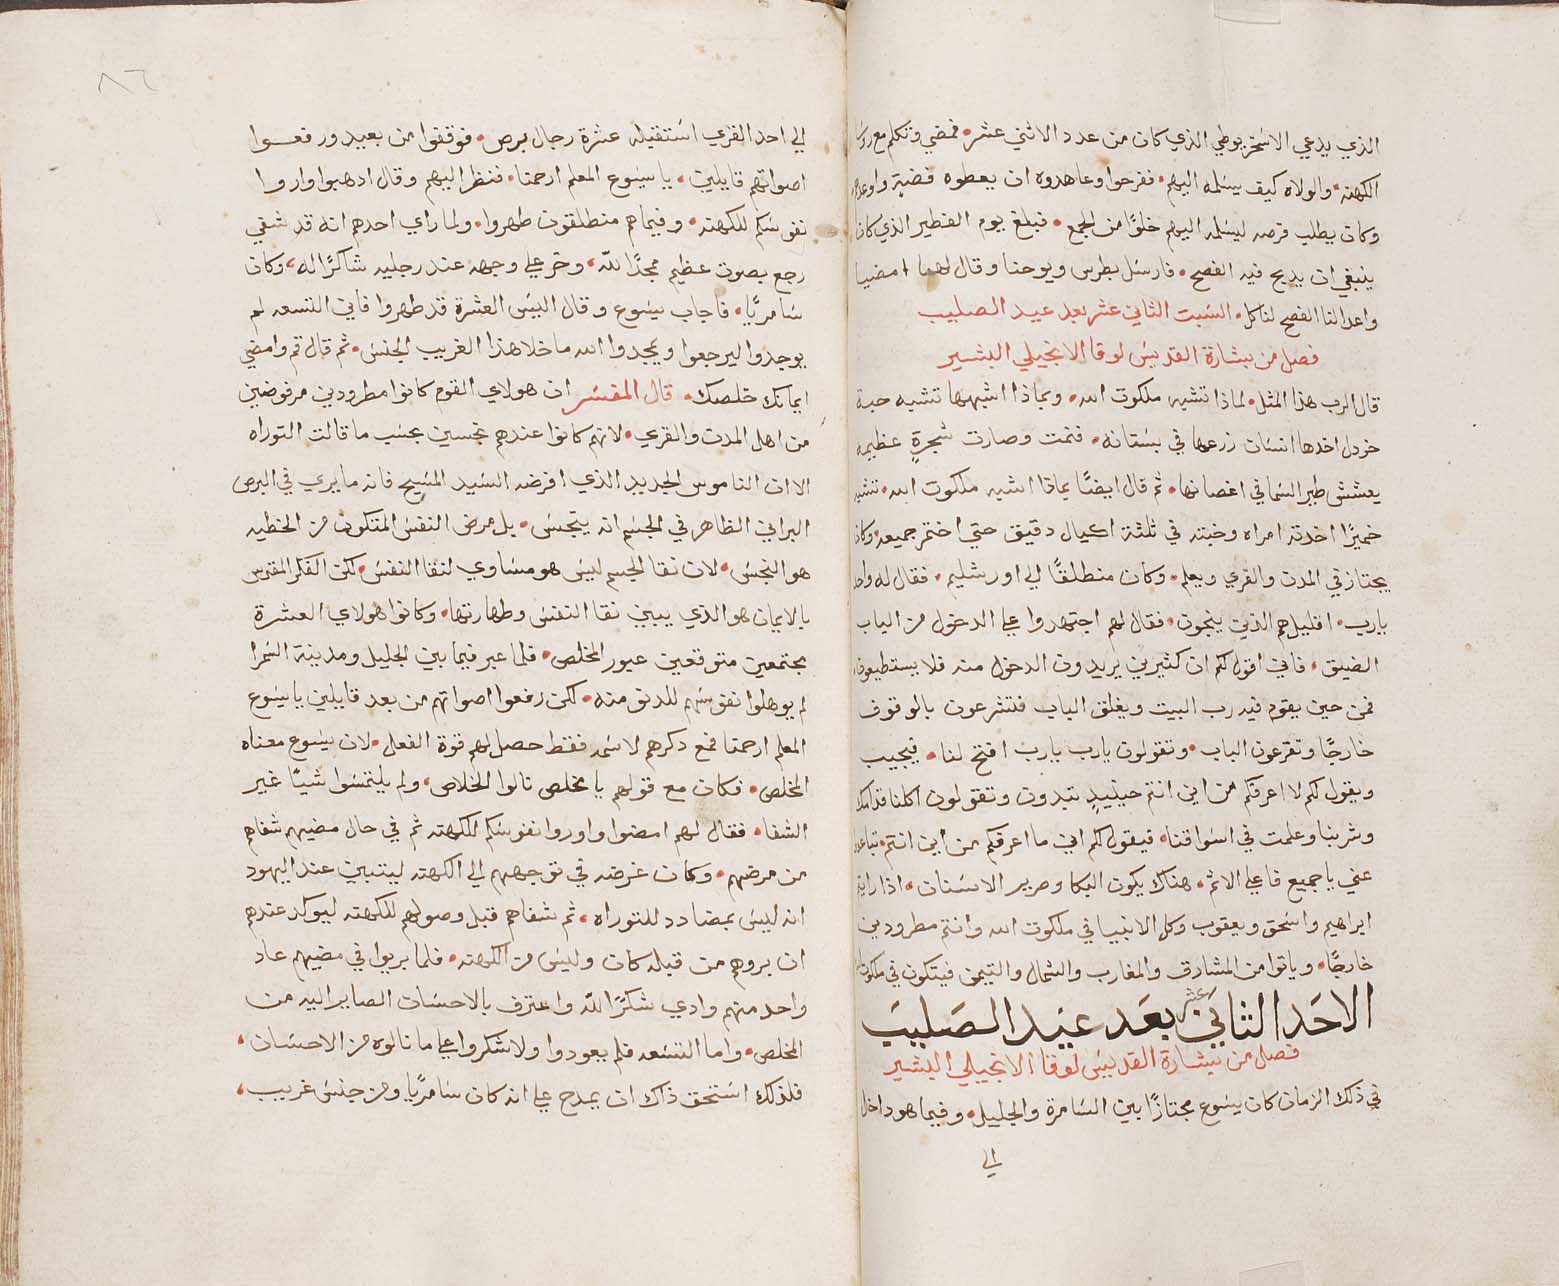 الذي يدعي الاسخريوطي الذي كان من عدد الاثني عشر • فمضي وتكلم مع روسا
الكهنه • والولاه كيف يسلمه اليهم • ففرحوا وعاهدوه ان يعطوه فضة واوعدهم
وكان يطلب فرصه ليسلمه اليهم خلوًا من الجمع • فبلغ يوم الفطير الذي كان
ينبغي ان يدبح فيه الفصح • فارسل بطرس ويوحنا وقال لهما امضيا
واعدا لنا الفصح لناكل • السبت الثاني عشر بعد عيد الصليب
فصل من بشارة القديس لوقا الانجيلي البشير
قال الرب هذا المثل • لماذا تشبه ملكوت الله • وبماذا اشبهها تشبه حبة
خردل اخدها انسان زرعها في بستانه • فنمت وصارت شجرةٍ عظيمه
يعشش طير السما في اغصانها • ثم قال ايضًا بماذا اشبه ملكوت الله • تشبه
خميرًا اخدته امراه وخبته في ثلثة اكيال دقيق حتي اختمر جميعه • وكان
يجتاز في المدن والقري ويعلم • وكان منطلقًا الي اورشليم • فقال له واحد
يارب • اقليل هم الذين ينجون • فقال لهم اجتهدوا علي الدخول من الباب
الضيق • فاني اقول لكم ان كثيرين يريدون الدخول منه فلا يستطيعون
فمن حين يقوم فيه رب البيت ويغلق الباب فتشرعون بالوقوف
خارجًا وتقرعون الباب • وتقولون يارب يارب افتح لنا • فيجيب
ويقول لكم لا اعرفكم من اين انتم حينيدٍ تبدون وتقولون اكلنا قدامك
وشربنا وعلمت في اسواقنا • فيقول لكم اني ما اعرفكم من اين انتم • تباعدوا
عني يا جميع فاعلي الاثم • هناك يكون البكا وصرير الاسنان • اذا رايتم
ابراهيم واسحق ويعقوب وكل الانبيا في ملكوت الله وانتم مطرودين
خارجًا • وياتوا من المشارق والمغارب والشمال والتيمن فيتكون في ملكوت الله
الاحد الثاني عشر بعد عيد الصليب
فصل من بشارة القديس لوقا الانجيلي البشير
في ذلك الزمان كان يسوع مجتازًا بين السامرة والجليل • وفيما هو داخل
الي
٨٦
الي احد القري استقبله عشرة رجال برص • فوقفوا من بعيد ورفعوا
اصواتهم قايلين • يا يسوع المعلم ارحمنا • فنظر اليهم وقال ادهبوا واروا
نفوسكم للكهنه • وفيما هم منطلقون طهروا • ولما راي احدهم انه قد شفي
رجع بصوت عظيم ممجدًا لله • وخر علي وجهه عند رجليه شاكرًا له • وكان
سامريًا • فاجاب يسوع وقال اليس العشرة قد طهروا فاين التسعه لم
يوجدوا ليرجعوا ويمجدوا الله ما خلا هذا الغريب الجنس • ثم قال قم وامضي
ايمانك خلصك • قال المفسر ان هولاي القوم كانوا مطرودين مرفوضين
من اهل المدن والقري • لانهم كانوا عندهم نجسين بحسب ما قالت التوراه
الا ان الناموس الجديد الذي افرضه السيد المسيح فانه ما يري في البرص
البراني الظاهر في الجسم انه يتجس • بل مرض النفس المتكون من الخطيه
هو النجس • لان نقا الجسم ليس هو مساوي لنقا النفس • لكن الفكر المقدس
بالايمان هو الذي يبين نقا النفس وطهارتها • وكانوا هولاي العشرة
مجتمعين متوقعين عبور المخلص • فلما عبر فيما بين الجليل ومدينة السمرا
لم يوهلوا نفوسهم للدنو منه • لكن رفعوا اصواتهم من بعد قايلين يا يسوع
المعلم ارحمنا فمع دكرهم لاسمه فقط حصل لهم قوة الفعل • لان يسوع معناه
المخلص • فكان مع قولهم يا مخلص نالوا الخلاص • ولم يلتمسوا شيًا غير
الشفا • فقال لهم امضوا واوروا نفوسكم للكهنه ثم في حال مضيهم شفاهم
من مرضهم • وكان غرضه في توجههم الي الكهنه ليتبين عند اليهود
انه ليس بمضادد للتوراه • ثم شفاهم قبل وصولهم للكهنه ليوكد عندهم
ان بروهم من قبله كان وليس من الكهنه • فلما بريوا في مضيهم عاد
واحد منهم وادي شكرًا لله واعترف بالاحسان الصاير اليه من
المخلص • واما التسعه فلم يعودوا ولا شكروا علي ما نالوه من الاحسان •
فلذلك استحق ذاك ان يمدح علي انه كان سامريًا ومن جنس غريب •